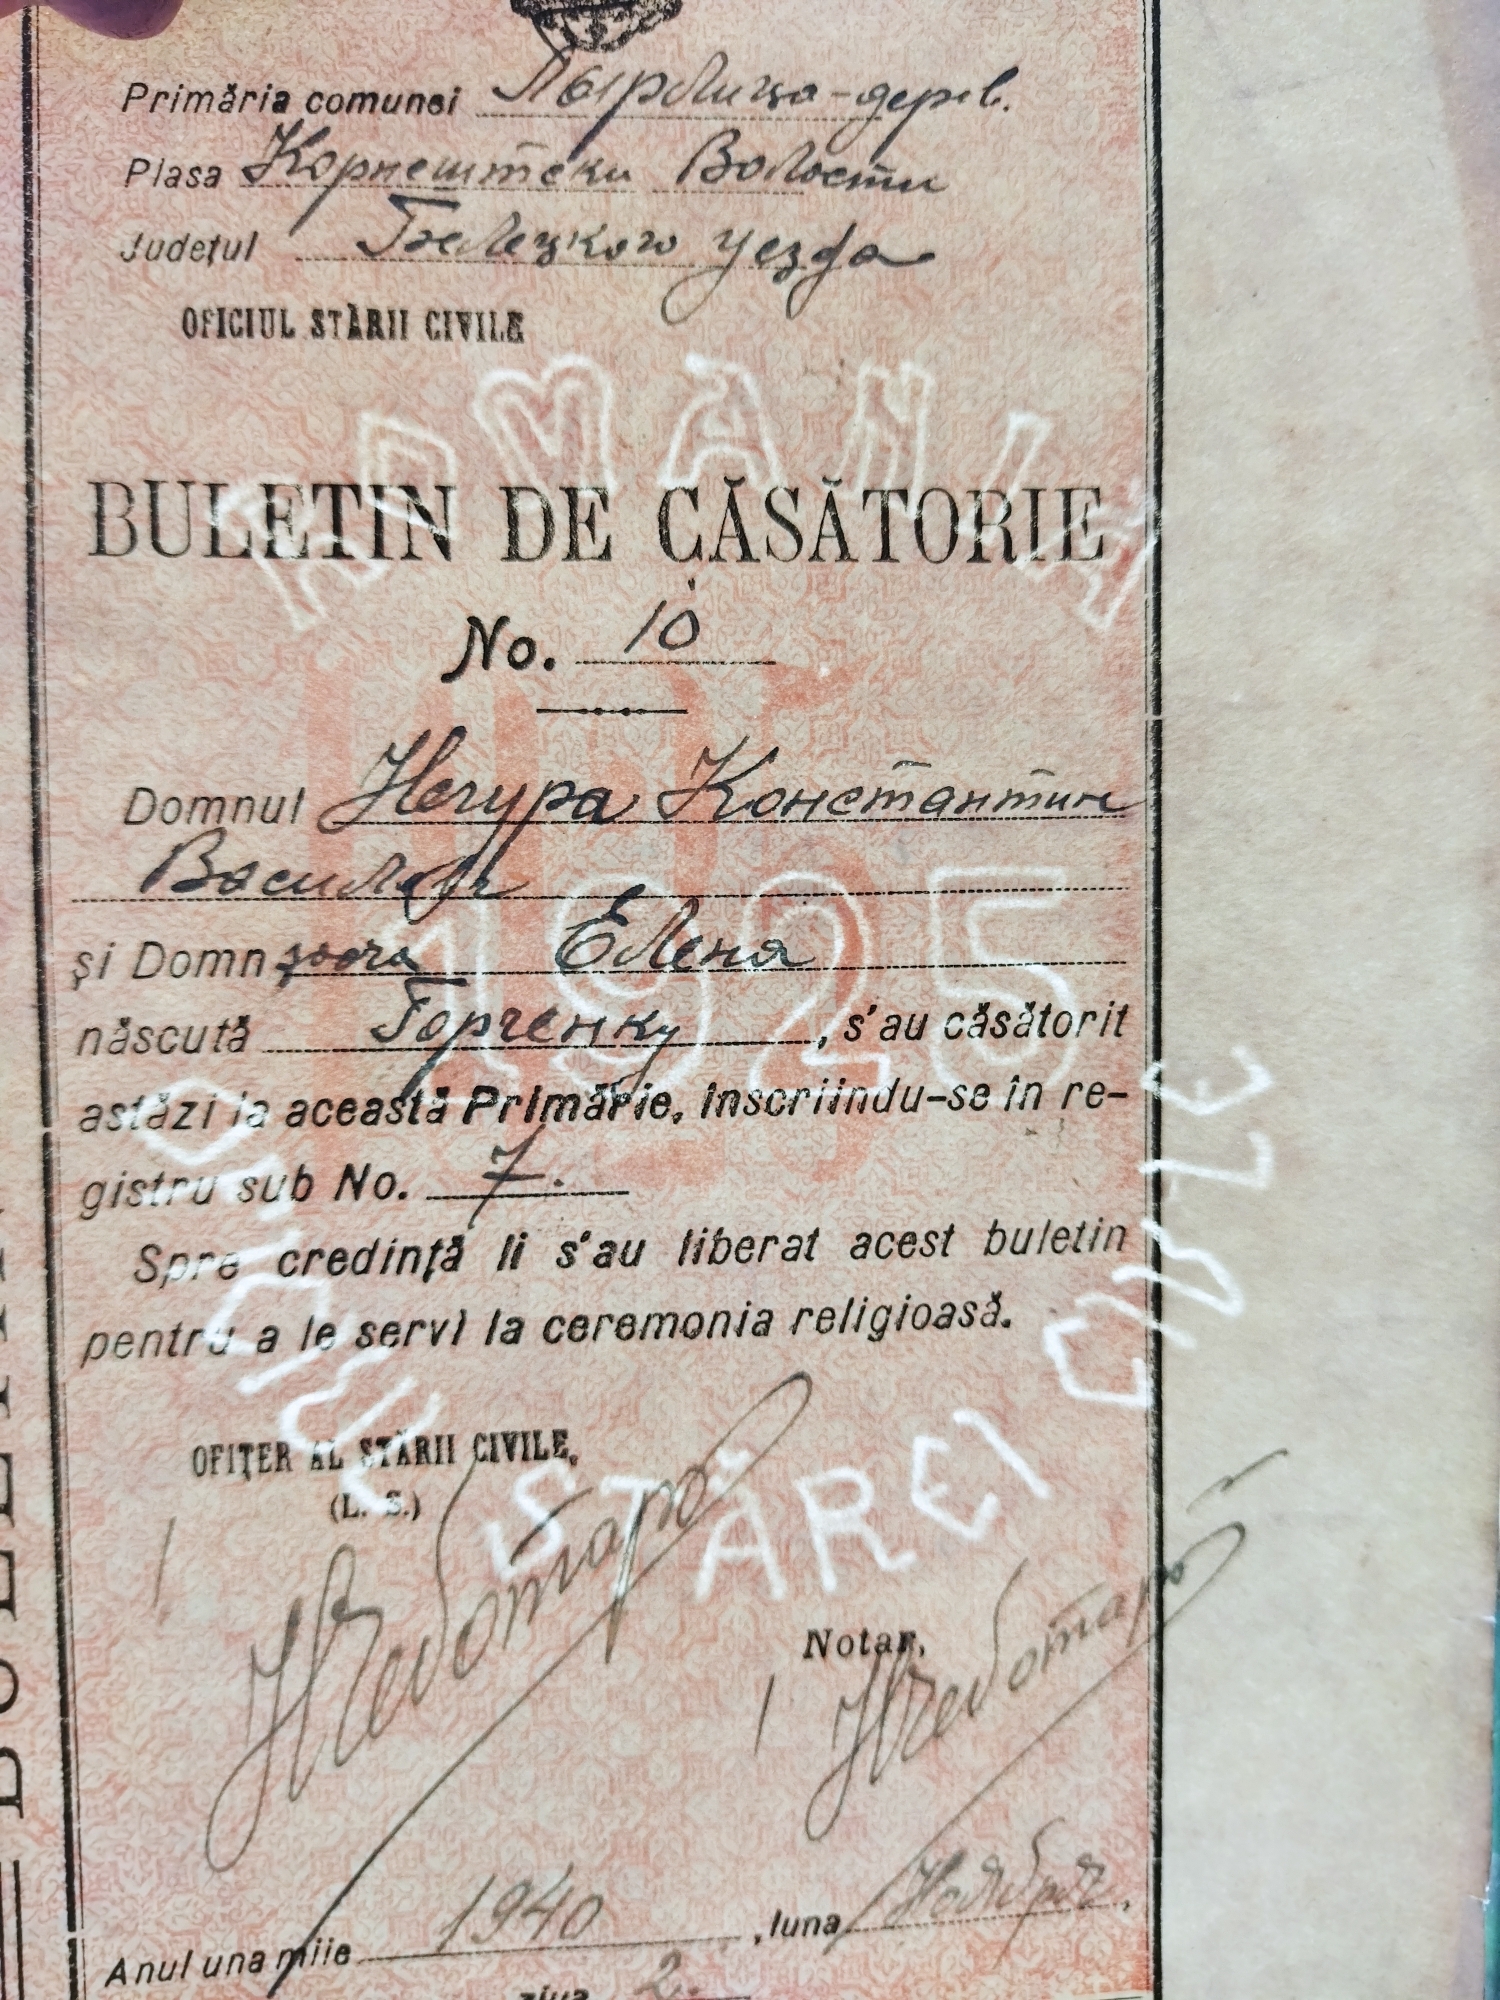 Primăria comunei Пырлица-дерев.
Plasa Корнештски Волости
Județul Бѣлецкого уезда
OFICIUL STĂRII CIVILE
ROMÂNIA
BULETIN DE CĂSĂTORIE
No. 10
Domnul Негура Константин
Василов
1925
și Domnșoara Елена
născută Горченку, s'au căsătorit
astăzi la această Primărie, înscriindu-se în re-
gistru sub No. 7.
Spre credință li s'au liberat acest buletin
pentru a le servi la ceremonia religioasă.
OFIȚER AL STĂRII CIVILE,
(L. S.)
STĂREI CIVILE
Notar,
Anul una miie 1940, luna Ноября,
ziua 2.